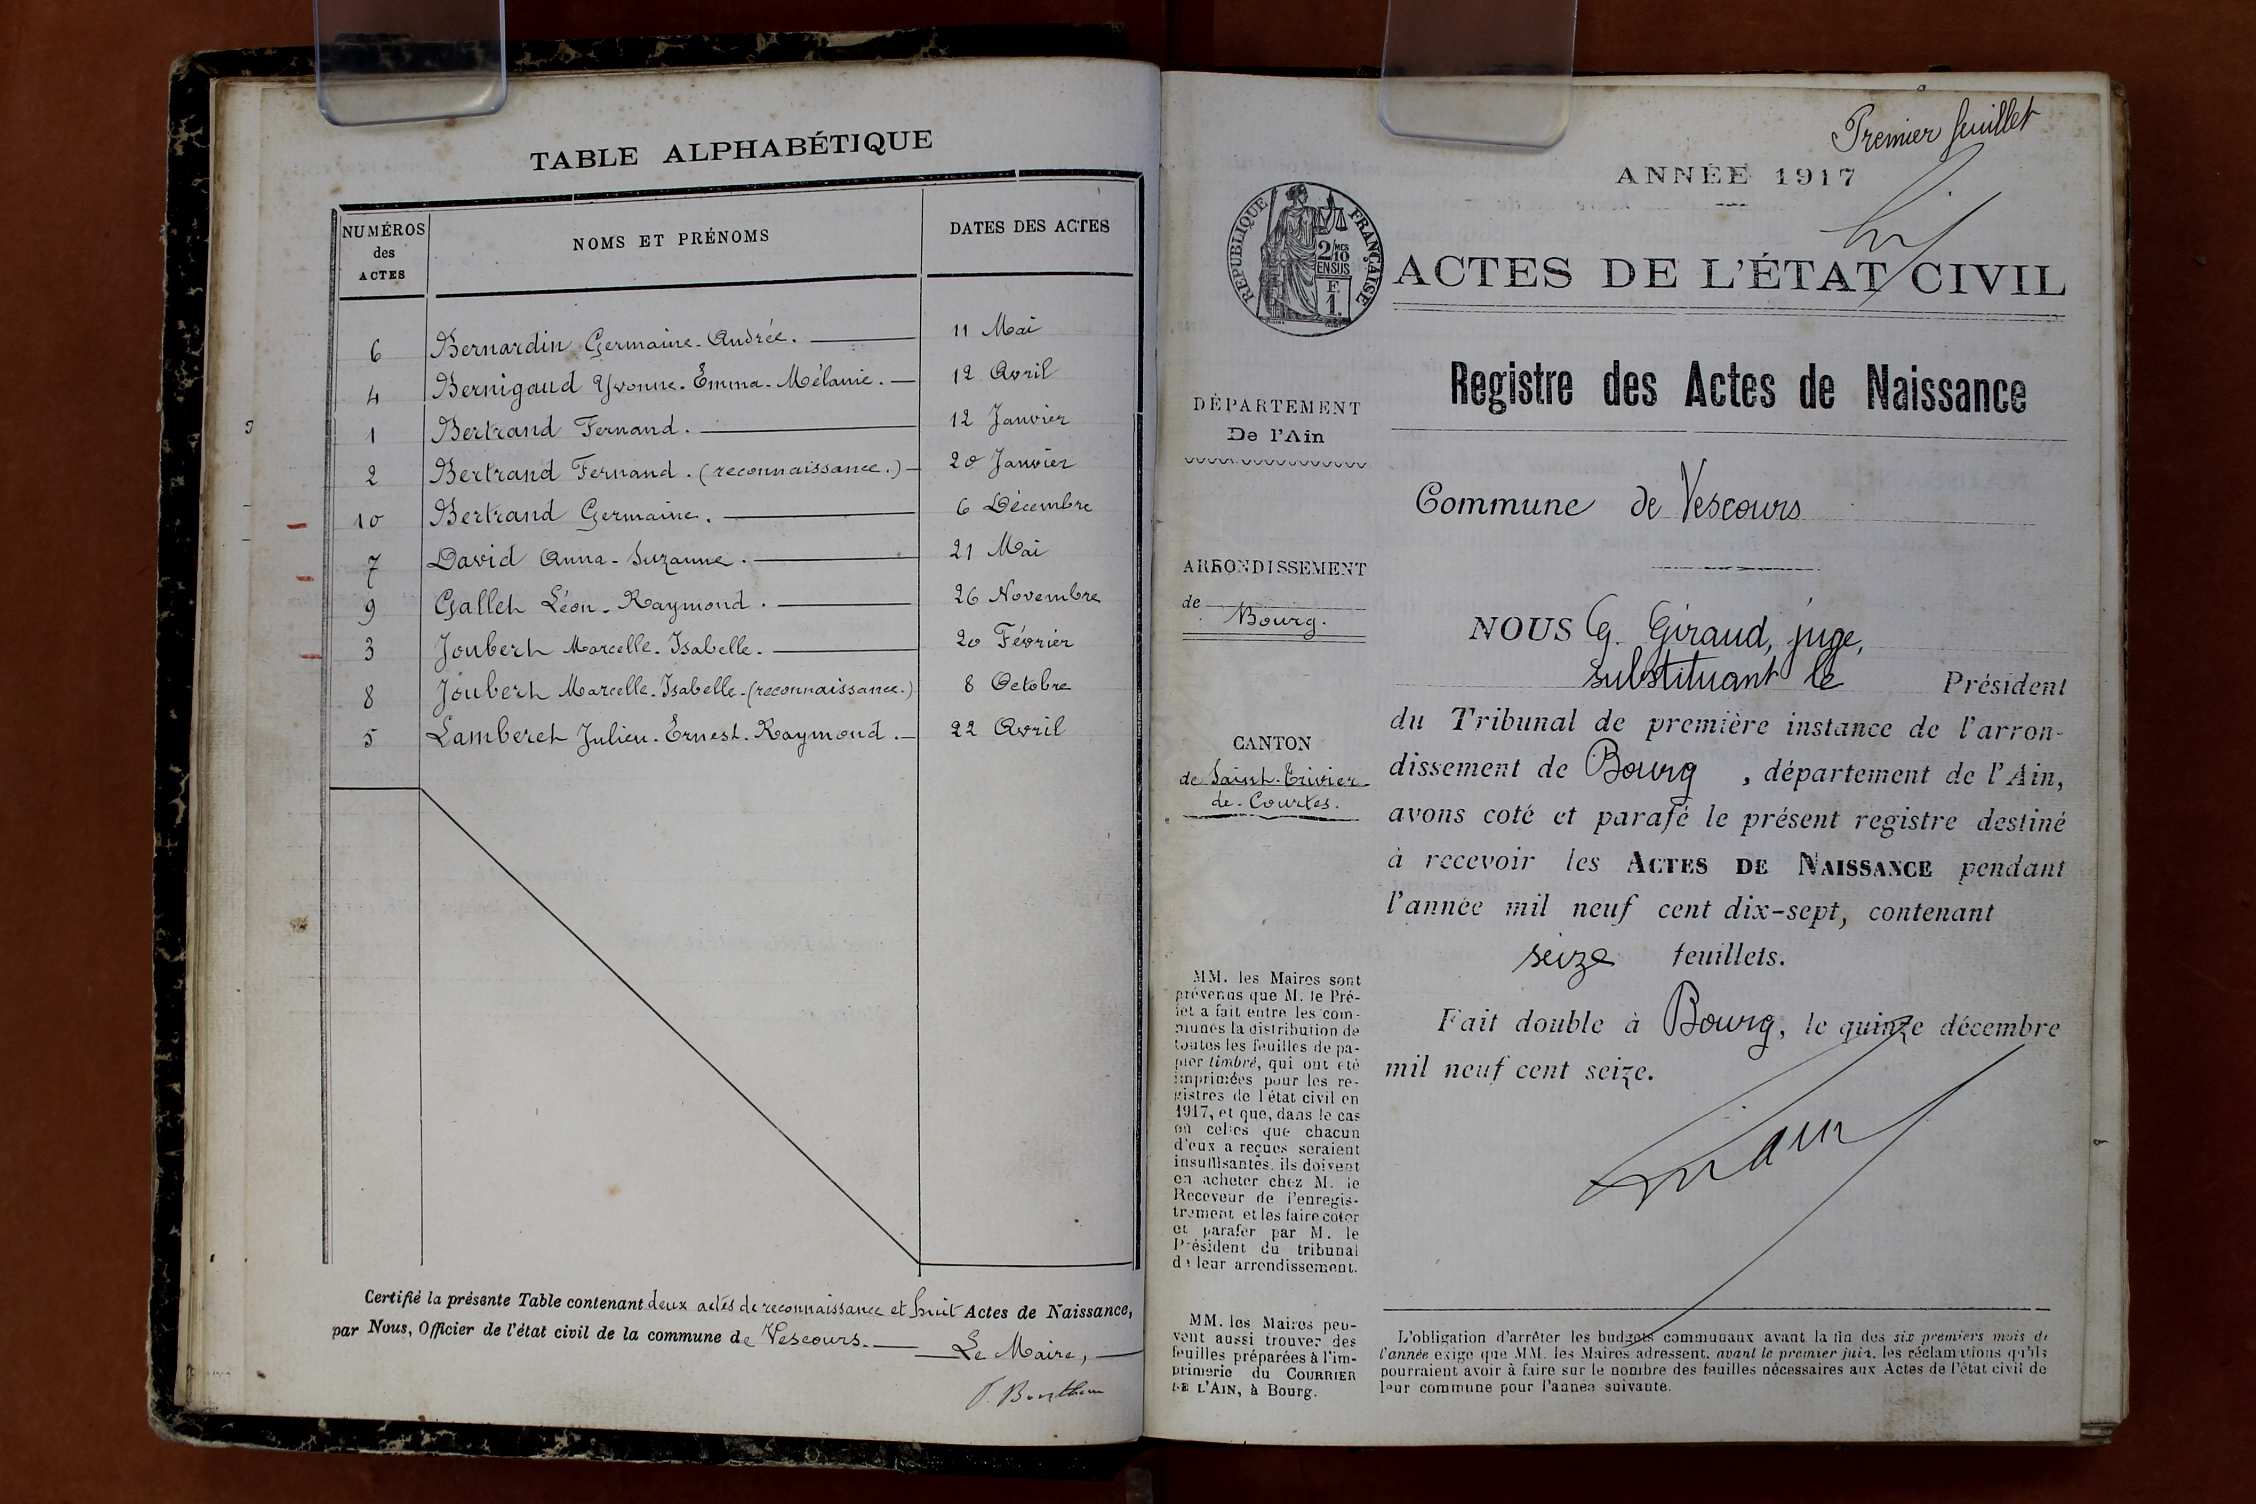 TABLE ALPHABÉTIQUE
NUMÉROS des ACTES NOMS ET PRÉNOMS DATES DES ACTES
6 Bernardin Germaine-Andrée. 11 Mai
4 Bernigaud Yvonne-Emma-Mélanie. 12 Avril
1 Bertrand Fernand. 12 Janvier
2 Bertrand Fernand. (reconnaissance.) 20 Janvier
10 Bertrand Germaine. 6 Décembre
7 David Anna-Suzanne. 21 Mai
9 Gallet Léon-Raymond. 26 Novembre
3 Joubert Marcelle-Isabelle. 20 Février
8 Joubert Marcelle-Isabelle-(reconnaissance.) 8 Octobre
5 Lamberet Julien-Ernest-Raymond. 22 Avril
Certifié la présente Table contenant deux actes de reconnaissance et huit Actes de Naissance,
par Nous, Officier de l'état civil de la commune de Vescours.
Le Maire,
Premier feuillet
ANNÉE 1917
RÉPUBLIQUE FRANÇAISE
2/10
MES
EN SUS
F
1.
ACTES DE L'ÉTAT CIVIL
Registre des Actes de Naissance
DÉPARTEMENT
De l'Ain
Commune de Vescours
ARRONDISSEMENT
de
Bourg.
CANTON
de Saint-Trivier-
de-Courtes.
NOUS G. Giraud, juge,
substituant le Président
du Tribunal de première instance de l'arron-
dissement de Bourg, département de l'Ain,
avons coté et parafé le présent registre destiné
à recevoir les ACTES DE NAISSANCE pendant
l'année mil neuf cent dix-sept, contenant
seize feuillets.
Fait double à Bourg, le quinze décembre
mil neuf cent seize.
MM. les Maires sont
prévenus que M. le Pré-
fet a fait entre les com-
munes la distribution de
toutes les feuilles de pa-
pier timbré, qui ont été
imprimées pour les re-
gistres de l'état civil en
1917, et que, dans le cas
où celles que chacun
d'eux a reçues seraient
insuffisantes, ils doivent
en acheter chez M. le
Receveur de l'enregis-
trement et les faire coter
et parafer par M. le
Président du tribunal
de leur arrondissement.
MM. les Maires peu-
vent aussi trouver des
feuilles préparées à l'im-
primerie du COURRIER
DE L'AIN, à Bourg.
L'obligation d'arrêter les budgets communaux avant la fin des six premiers mois de
l'année exige que MM. les Maires adressent, avant le premier juin, les réclamations qu'ils
pourraient avoir à faire sur le nombre des feuilles nécessaires aux Actes de l'état civil de
leur commune pour l'année suivante.